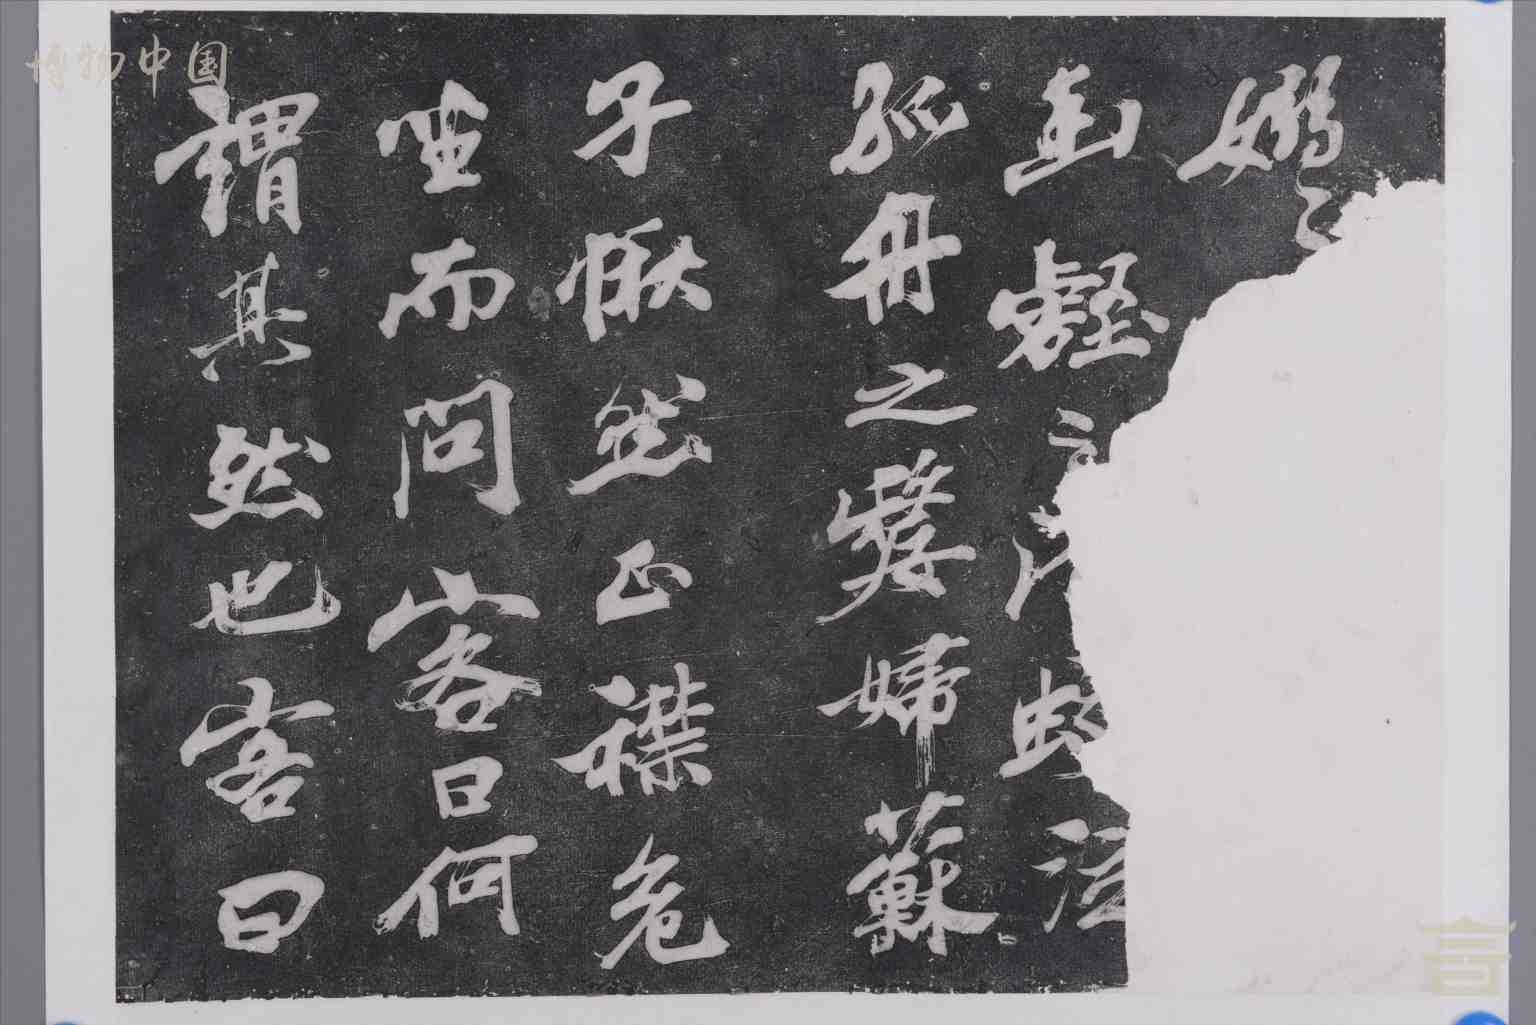 嫋々
幽壑之蛟泣
孤舟之嫠婦蘇
子愀然正襟危
坐而問客曰何
謂其然也客曰
博物中国